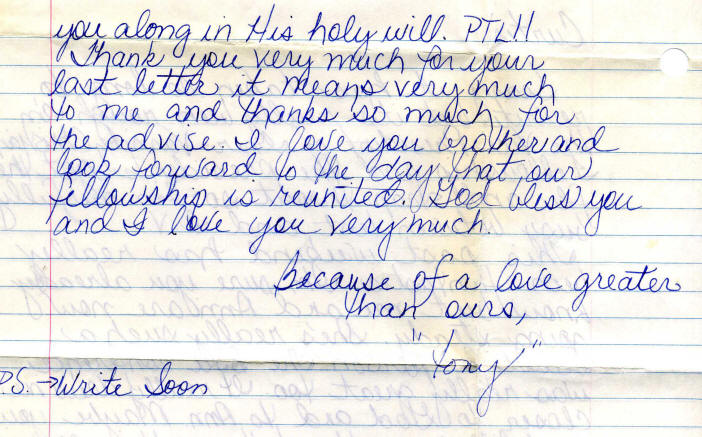 you along in His holy will. PTL!!
Thank you very much for your
last letter it means very much
to me and thanks so much for
the advise. I love you brother and
look forward to the day that our
fellowship is reunited. God bless you
and I love you very much.
Because of a love greater
than ours,
"Tony"
P.S. → Write Soon